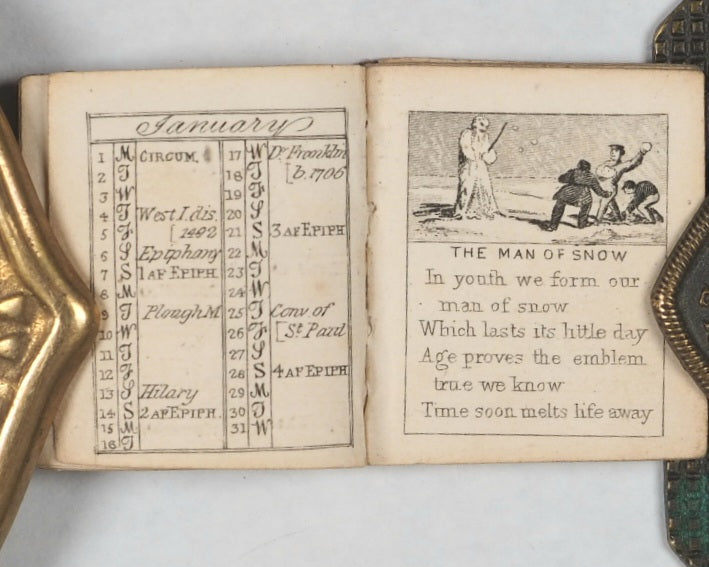 January
1 M CIRCUM.
2 T
3 W
4 T West I. dis.
5 F [1492
6 S Epiphany
7 S 1 AF EPIPH.
8 M
9 T Plough M
10 W
11 T
12 F
13 S Hilary
14 S 2 AF EPIPH.
15 M
16 T
17 W Dr Franklin
18 T [b. 1706
19 F
20 S
21 S 3 AF EPIPH
22 M
23 T
24 W
25 T Conv of
26 F [St Paul
27 S
28 S 4 AF EPIPH
29 M
30 T
31 W
THE MAN OF SNOW
In youth we form our
man of snow
Which lasts its little day
Age proves the emblem
true we know
Time soon melts life away